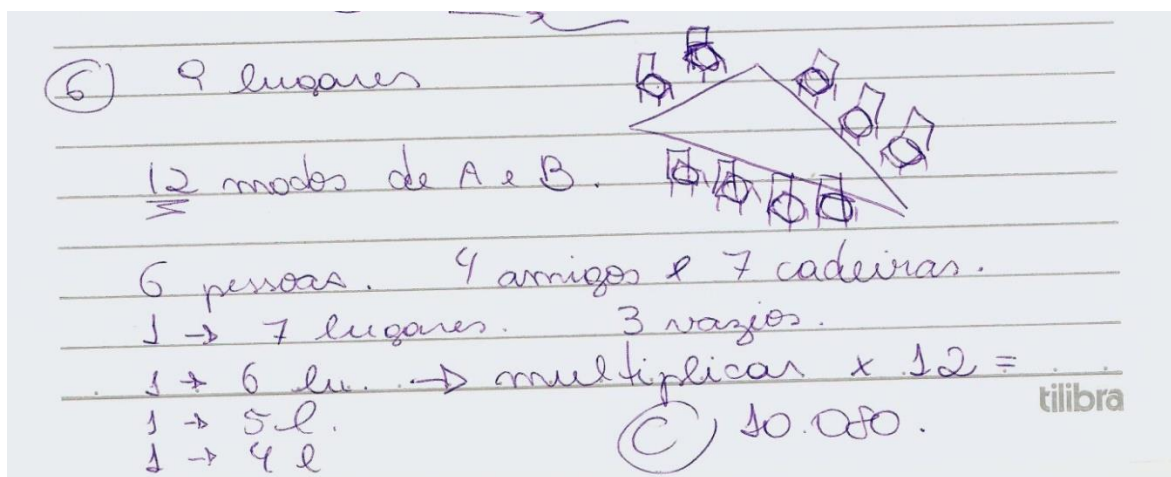 6 9 lugares
12 modos de A e B.
6 pessoas. 4 amigos e 7 cadeiras.
1 → 7 lugares. 3 vazios.
1 → 6 lu. → multiplicar x 12 =
tilibra
1 → 5 l. C 10.080.
1 → 4 l